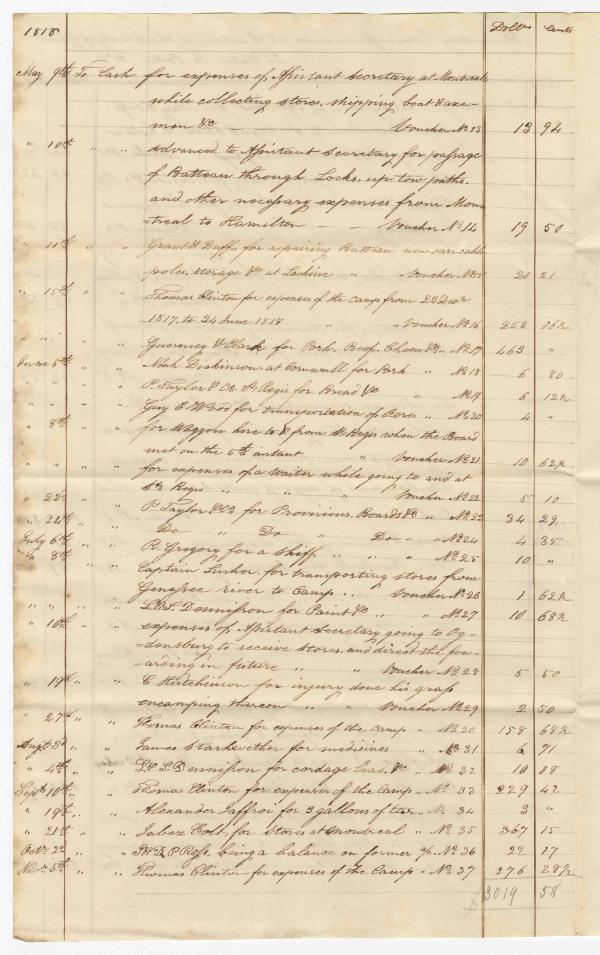 1818 Dollrs Cents
May 9th To Cash for expenses of Assistant Secretary at Montreal
while collecting stores, shipping boat & axe-
men &c Voucher No. 13 13 94
" 10th " " advanced to Assistant Secretary for passage
of Batteau through Locks, up tow paths,
and other necessary expenses from Mon-
=treal to Hamilton — — Voucher No 14 19 50
" 11th " " Grant & Duff, for repairing Batteau new oars, cable
poles, storage &c at Lachine " " Voucher No 15 20 21
" 15th " " Thomas Clinton for expenses of the camp from 22 Decr
1817, to 24 June 1818 " " Voucher No 16 258 06½
" " " " Guernsey & Clark for Pork, Beef, Cheese &c " No 17 463 "
June 5th " " Noah Dickinson at Cornwall for Pork " No 18 6 80
P. Taylor & Co St. Regis for Bread &c " No 19 6 12½
Guy C Wood for transportation of Stores " No. 20 4 "
" 8th " " for Waggon hire to & from St Regis when the Board
met on the 5th instant " Voucher No. 21 10 62½
" " " " for expenses of a Waiter while going to and at
St. Regis " " " Voucher No 22 5 10
" 22d " " P Taylor & Co for Provisions, Boards &c " No. 23 34 29
" 24th " " Do " Do " Do " No 24 4 35
July 6th " " R. Gregory for a Skiff " " " No. 25 10 "
" 8th " " Captain Lusher for transporting stores from
Genessee river to Camp " " Voucher No 26 1 62½
" " " " L & S. Dennisson for Paint &c " " No. 27 10 68½
" 10th " " expenses of Assistant Secretary going to Og-
=densburg to receive stores, and direct the for-
=arding in future " " Voucher No 28 5 50
" 19th " " C Hutchinson for injury done his grass
encamping thereon " " Voucher No 29 2 50
" 27th " " Thomas Clinton for expenses of the Camp " No 30 158 68½
Augt 3d " " James Starkwether for medicines " No 31 6 71
" 4th " " L & S. Dennisson for cordage &c " No 32 10 08
Septr 10th " " Thomas Clinton for expenses of the Camp " No 33 229 42
" 19th " " Alexander Jaffroi for 3 gallons of tar " No 34 3 "
" 21st " " Jabez Colt, for stores at Montreal " No 35 367 15
Octr 2d " " P Ross, being a balance on former a/c No 36 22 17
Novr 5th " " Thomas Clinton for expenses of the Camp " No 37 276 28½
$3019 58